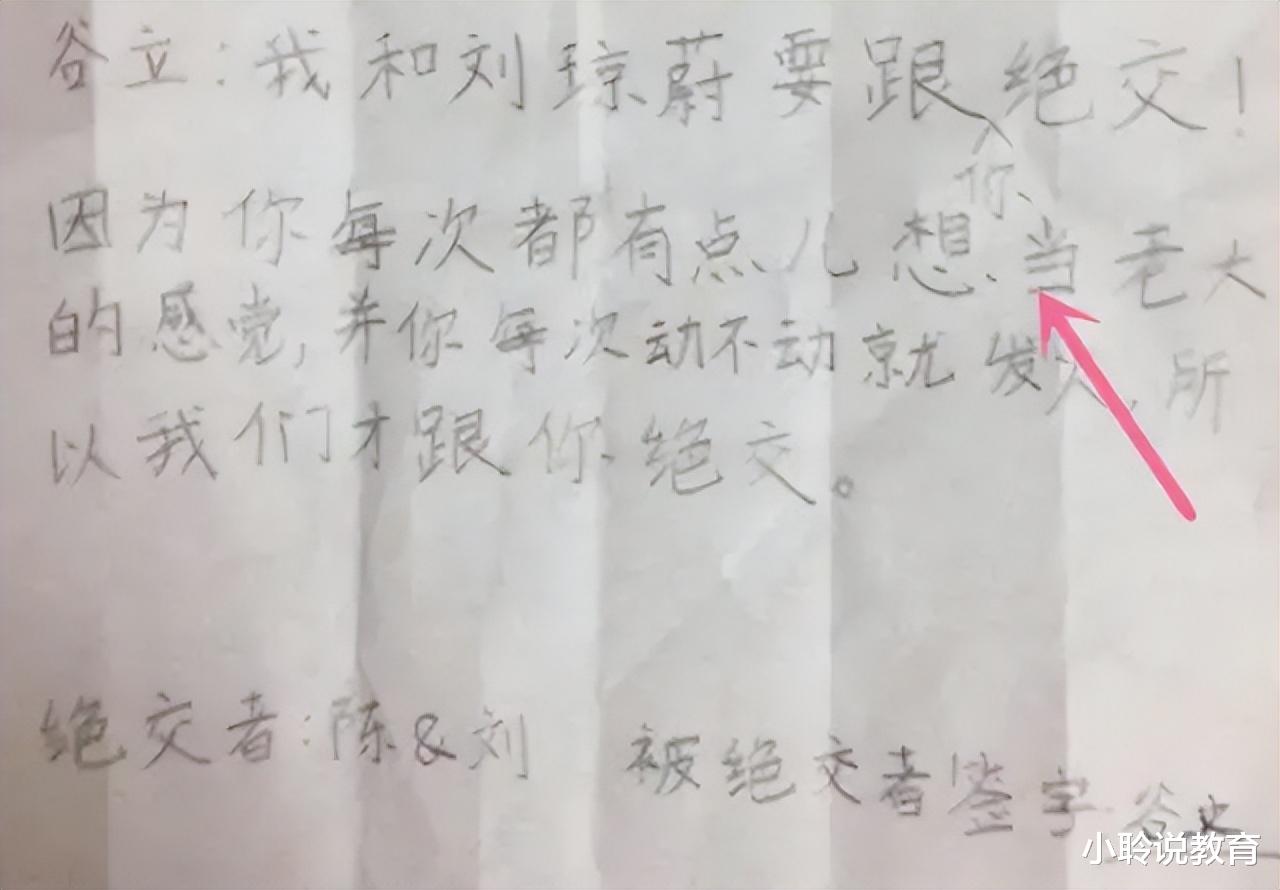 谷立：我和刘琼蔚要跟你绝交！
因为你每次都有点儿想当老大
的感觉，并你每次动不动就发火，所
以我们才跟你绝交。
绝交者：陈&刘 被绝交者签字 谷立
小聆说教育